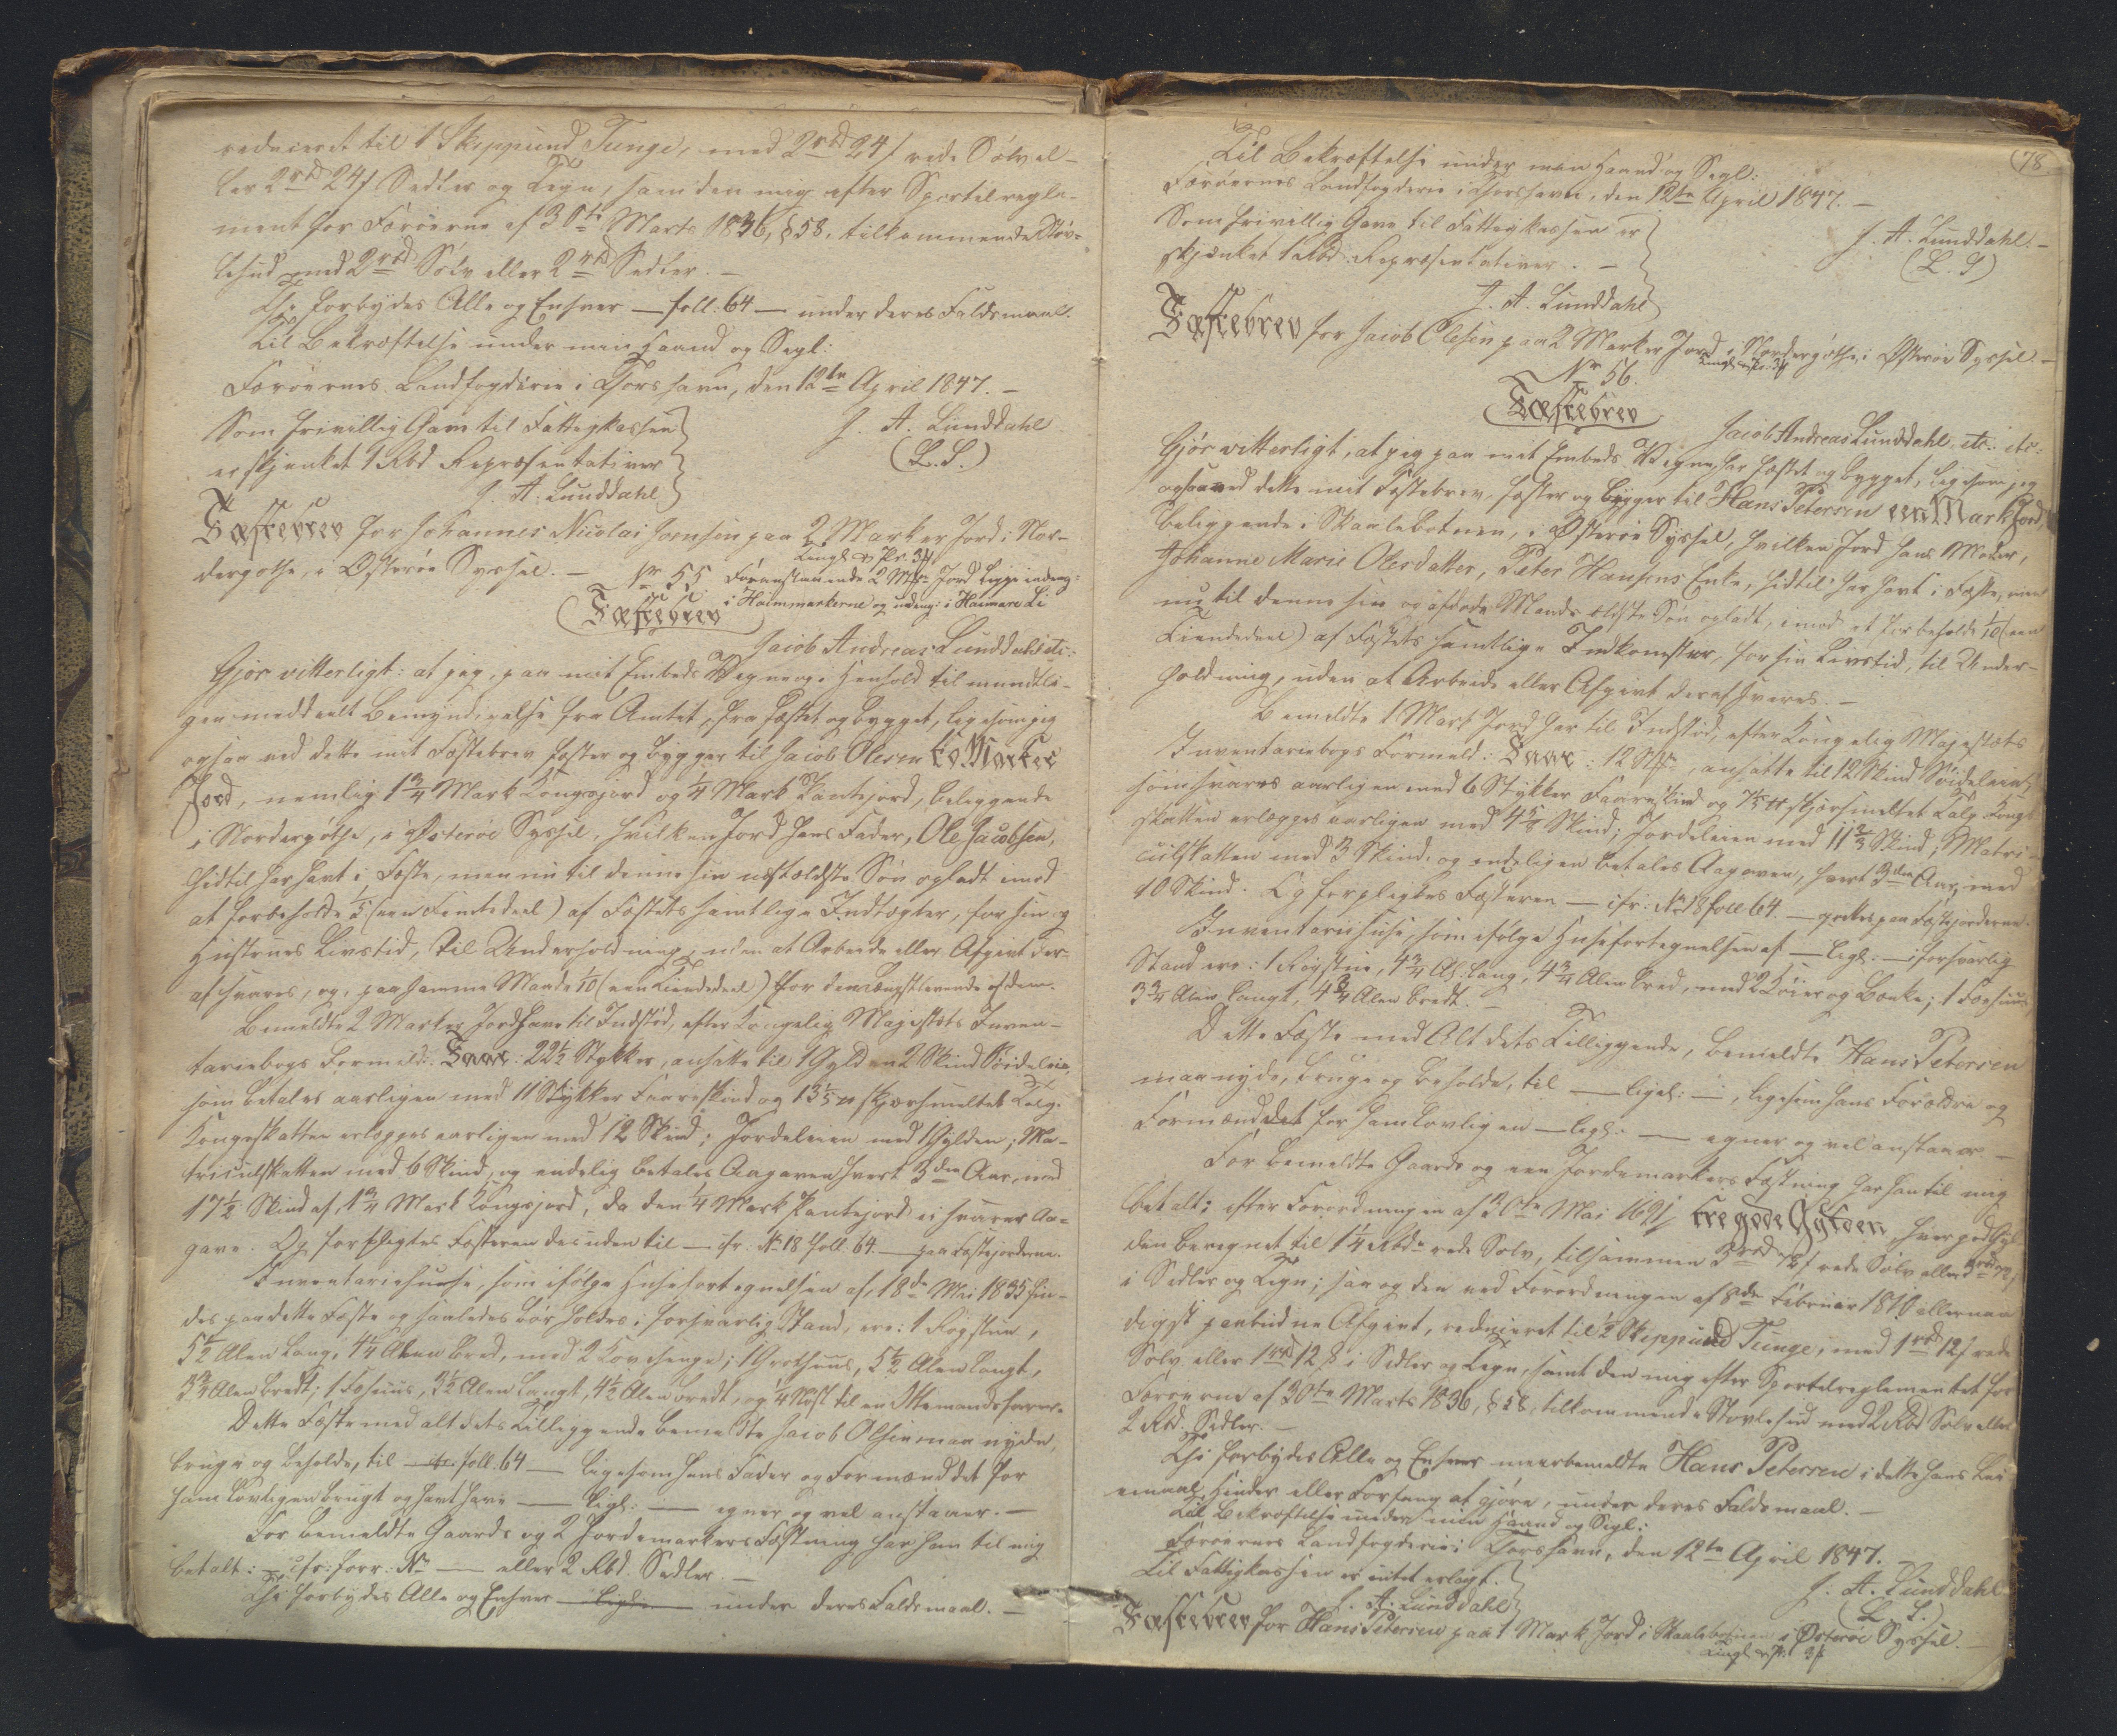 reduceret til 1 Skippund Tunge, med 2 rbd 24 ß rede Sølv el-
ler 2 rbd 24 ß Sedler og Tegn, samt den mig efter Sportelregle-
ment for Færøerne af 30te Marts 1836, § 58, tilkommende Støv-
lehud med 2 rbd Sølv eller 2 rbd Sedler. —
Thi forbydes Alle og Enhver — foll. 64 — under deres Faldsmaal.
Til Bekræftelse under min Haand og Segl:
Færøernes Landfogderie i Thorshavn, den 12te April 1847. —
Som frivillig Gave til Fattigkassen
er skjenket 1 Rbd Repræsentativer
J. A. Lunddahl
(L.S.)
J. A. Lunddahl
Fæstebrev for Johannes Nicolai Joensen paa 2 Marker Jord i Nor-
dergøthe, i Østerøe Syssel. —
Nr 55. Foranstaaende 2 Mkr. Jord ligge indeng:
i Haimmarkerne og udeng: i Haimare Li
Fæstebrev
Jacob Andreas Lunddahl etc:
Gjør vitterligt: at jeg, paa mit Embeds Vegne og i Henhold til mundtli-
gen meddeelt Bemyndigelse fra Amtet, har fæstet og bygget, ligesom jeg
ogsaa ved dette mit Fæstebrev fæster og bygger til Jacob Olesen to Marker
Jord, nemlig 1 3/4 Mark Kongsjord og 1/4 Mark Pantejord, beliggende
i Nordergøthe, i Østerøe Syssel, hvilken Jord hans Fader, Ole Jacobsen,
hidtil har havt i Fæste, men nu til denne sin næstældste Søn opladt imod
at forbeholde 1/5 (een Femtedeel) af Fæstets samtlige Indtægter, for sin og
Hustrues Livstid, til Underholdning, uden at Arbeide eller Afgivt der-
af svares, og, paa samme Maade 1/10 (een Tiendedeel) for den længstlevende af dem.
Bemeldte 2 Marker Jord have til Indstød, efter Kongelig Majestæts Inven-
tariebogs Formeld: Faar: 22 1/2 Stykker, ansatte til 1 Gylden 2 Skind Søideleie,
som betales aarligen med 11 Stykker Faareskind og 13 1/5 ℔ skjørsmeltet Talg.
Kongeskatten erlægges aarligen med 12 Skind; Jordeleien med 1 Gylden; Ma-
triculskatten med 6 Skind, og endelig betales Aagaven hvert 3die Aar, med
17 1/2 Skind af 1 3/4 Mark Kongsjord, da den 1/4 Mark Pantejord ei svarer Aa-
gave. Og forpligtes Fæsteren desuden til — cfr. No 18 foll. 64 — paa Fæstejorderne.
Inventariehuse, som ifølge Husefortegnelsen af 18de Mai 1835 fin-
des paa dette Fæste og saaledes bør holdes i forsvarlig Stand, ere: 1 Røgstue,
5 1/2 Alen lang, 4 1/4 Alen bred, med 2 Kovesenge; 1 Grothuus, 5 1/2 Alen langt,
3 3/4 Alen bredt; 1 Fæhuus, 3 1/2 Alen langt, 4 1/2 Alen bredt, og 1/4 Nøst til en Ottemandsfarer.
Dette Fæste med alt dets Tilliggende bemeldte Jacob Olesen maa nyde,
bruge og beholde, til — foll. 64 — ligesom hans Fader og Formænd det før
ham lovligen brugt og havt have — ligl: — egner og vel anstaaer. —
For bemeldte Gaards og 2 Jordemarkers Fæstning har han til mig
betalt: — cfr: forr: No — eller 2 Rbd. Sedler. —
Thi forbydes Alle og Enhver — ligl: — under deres Faldsmaal. —
78.
Til Bekræftelse under min Haand og Segl:
Færøernes Landfogderie i Thorshavn, den 12te April 1847. —
Som frivillig Gave til Fattigkassen er
skjænket 1 Rbd. Repræsentativer. —
J. A. Lunddahl. —
(L. S)
J. A. Lunddahl
Fæstebrev for Jacob Olesen paa 2 Marker Jord i Nordergøthe, i Østerøe Syssel. —
Nr 56.
Fæstebrev
Jacob Andreas Lunddahl, etc. etc:
Gjør vitterligt, at jeg paa mit Embeds Vegne har fæstet og bygget, ligesom jeg
ogsaa ved dette mit Fæstebrev fæster og bygger til Hans Petersen een Mark Jord
beliggende i Skaalebotnen, i Østerøe Syssel, hvilken Jord hans Moder,
Johanne Marie Olesdatter, Peter Hansens Enke, hidtil har havt i Fæste, men
nu til denne sin og afdøde Mands ældste Søn opladt, imod at forbeholde 1/10 (een
Tiendedeel) af Fæstets samtlige Indkomster, for sin Livstid, til Under-
holdning, uden at Arbeide eller Afgivt deraf svares. —
Bemeldte 1 Mark Jord har til Indstød, efter Kongelig Majestæts
Inventariebogs Formeld: Faar: 12 Stkr, ansatte til 12 Skind Søideleie,
som svares aarligen med 6 Stykker Faareskind og 7 1/5 ℔ skjørsmeltet Talg. Konge-
skatten erlægges aarligen med 4 5/8 Skind; Jordeleien med 11 2/3 Skind; Matri-
culskatten med 3 Skind, og endeligen betales Aagaven, hvert 3die Aar, med
10 Skind. Og forpligtes Fæsteren — cfr: No 18 foll 64 — paa Fæstejorderne.
Inventariehuse, som ifølge Husefortegnelsen af — ligl: — i forsvarlig
Stand ere: 1 Røgstue, 4 3/4 Al. lang, 4 3/4 Alen bred, med 2 Køier og Bænke; 1 Fæhuus
3 3/4 Alen langt, 4 3/4 Alen bredt. —
Dette Fæste med Alt dets Tilliggende, bemeldte Hans Petersen
maa nyde, bruge og beholde, til — ligel: —, ligesom hans Forældre og
Formænd det før ham lovligen — ligl: — egner og vel anstaaer. —
For bemeldte Gaards og een Jordemarkers Fæstning har han til mig
betalt: efter Forordningen af 30te Mai 1691, tre gode Gylden, hver god Gyl-
den beregnet til 1 1/4 Rbd rede Sølv, tilsammen 3 rbd 72 ß rede Sølv eller 3 rbd 72 ß
i Sedler og Tegn; saa og den ved Forordningen af 8de Februar 1810 allernaa-
digst paabudne Afgivt, reduceret til 1/2 Skippund Tunge, med 1 rbd 12 ß rede
Sølv eller 1 rbd 12 ß i Sedler og Tegn, samt den mig efter Sportelreglementet for
Færøerne af 30te Marts 1836, § 58, tilkommende Støvlehud med 2 Rbd Sølv eller
2 Rbd. Sedler. —
Thi forbydes Alle og Enhver meerbemeldte Hans Petersen i dette hans Lei-
emaal, Hinder eller Forfang at gjøre, under deres Faldsmaal. —
Til Bekræftelse under min Haand og Segl:
Færøernes Landfogderie i Thorshavn, den 12te April 1847. —
Til Fattigkassen er intet erlagt.
J. A. Lunddahl
J. A. Lunddahl
(L. S.)
Fæstebrev for Hans Petersen paa 1 Mark Jord i Skaalebotnen i Østerøe Syssel. —